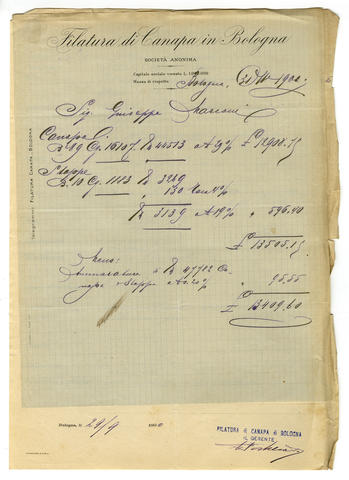 Filatura di Canapa in Bologna
SOCIETÀ ANONIMA
Capitale sociale versato L.
Massa di rispetto
Bologna, 190
Telegrammi: FILATURA CANAPA - BOLOGNA
Sig. Giuseppe Marconi
Canapa C.
B. 49 Cg. 16107. K 44513 a 29% £ 12908.75
Stoppe
B. 10 Cg. 1113 K 3269
130 4%
K 3139 a 19% " 596.40
£ 13505.15
Meno:
K 47782 Ca-
napa e Stoppe a 0.20% " 95.55
£ 13409.60
Bologna, li 29/9 190
FILATURA di CANAPA di BOLOGNA
IL GERENTE